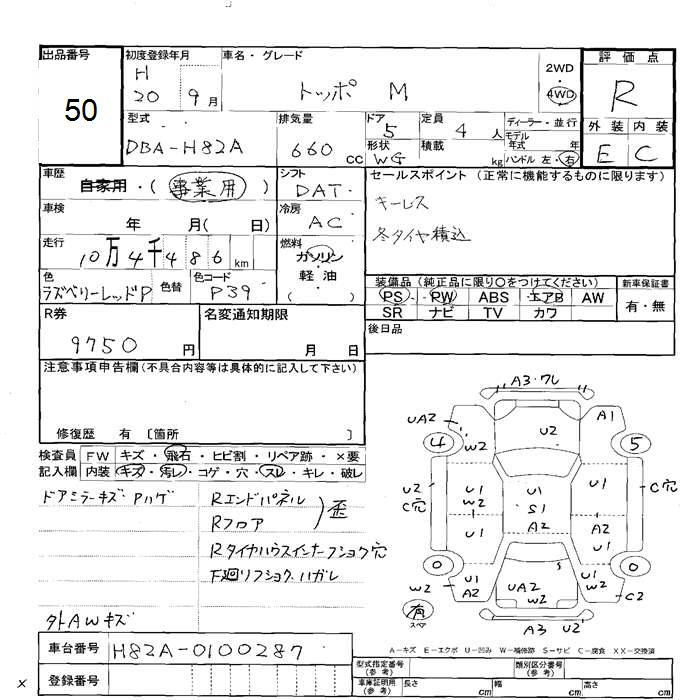 出品番号
50
初度登録年月
H
20 9月
車名・グレード
トッポ M
2WD
・
4WD
評価点
R
外装 内装
E C
型式
DBA-H82A
排気量
660 CC
ドア
5
形状
WG
定員
4 人
積載 kg
ディーラー・並行
モデル
年式 年
ハンドル 左・右
車歴
自家用・(事業用)
シフト
DAT
セールスポイント (正常に機能するものに限ります)
キーレス
冬タイヤ積込
車検
年 月( 日)
冷房
AC
走行
10万4千486 km
燃料
ガソリン
軽油
( )
色
ラズベリーレッドP
色替
色コード
P39
装備品 (純正品に限り○をつけてください)
PS PW ABS エアB AW
SR ナビ TV カワ
新車保証書
有・無
R券
9750 円
名変通知期限
月 日
後日品
注意事項申告欄(不具合内容等は具体的に記入して下さい)
修復歴 有 〔箇所 〕
検査員
記入欄
FW キズ・飛石・ヒビ割・リペア跡・×要
内装 キズ・汚レ・コゲ・穴・スレ・キレ・破レ
ドアミラーキズ Aハゲ
Rエンドパネル
Rフロア
歪
Rタイヤハウスインナーフショク穴
下廻リフショク、ハガレ
外AWキズ
A3・ワレ
UA2
W2
U2
A1
4
5
U2
C穴
U1
W2
U1
S1
U1
C穴
U1
A2
A2
U1
0
0
S
W2
U1
A2
UA2
W2
U1
W2
C2
有
スペア
A3 U2
A-キズ E-エクボ U-凹み W-補修跡 S-サビ C-腐食 XX-交換済
車台番号
H82A-0100287
登録番号
型式指定番号
(参考)
類別区分番号
(参考)
車庫証明用
(参考)
長さ cm
幅 cm
高さ cm
x